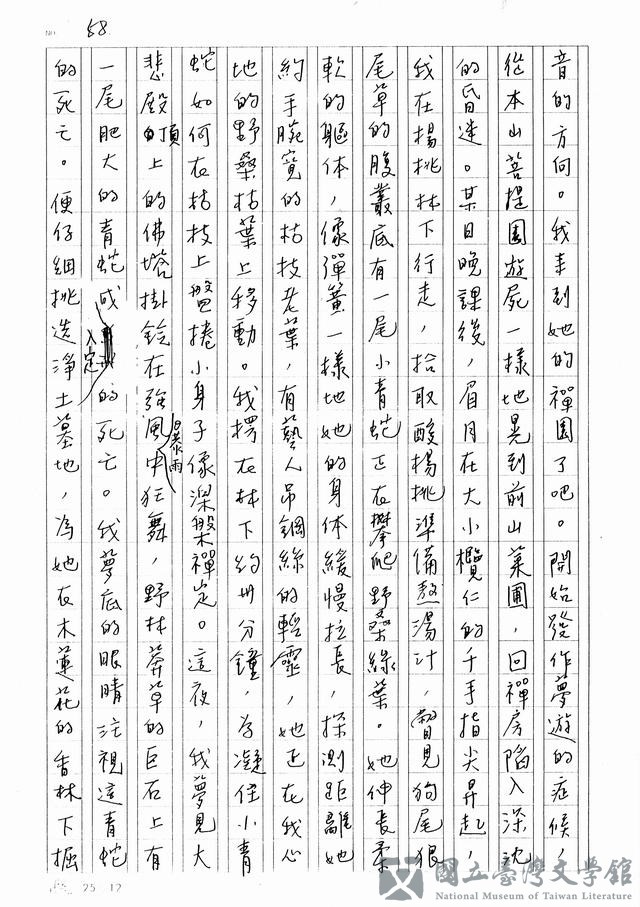 NO. 58
音的方向。我来到她的禪園了吧。開始發作夢遊的症候，
從本山菩提園遊屍一樣地晃到前山菜圃，回禪房陷入深沈
的昏迷。某日晚課後，眉月在大小欖仁的千手指尖昇起，
我在揚挑林下行走，拾取酸揚挑準備熬湯汁，瞥見狗尾狠
尾草的腹叢底有一尾小青蛇正在攀爬野桑綠葉。她伸長柔
軟的軀体，像彈簧一樣地她的身体緩慢拉長，探測距離她
約手腕寬的枯技老葉，有藝人吊鋼絲的輕靈，她正在我心
地的野桑枯葉上移動。我楞在林下約卅分鐘，為凝住小青
蛇如何在枯技上盤捲小身子像涅槃禪定。這夜，我夢見大
悲殿頂上的佛塔掛鈴在強風暴雨中狂舞，野林莽草的巨石上有
一尾肥大的青蛇或入定的死亡。我夢底的眼睛注視這青蛇
的死亡。便仔細挑选淨土墓地，為她在木蓮花的香林下掘
25 12
國立臺灣文學館
National Museum of Taiwan Literature